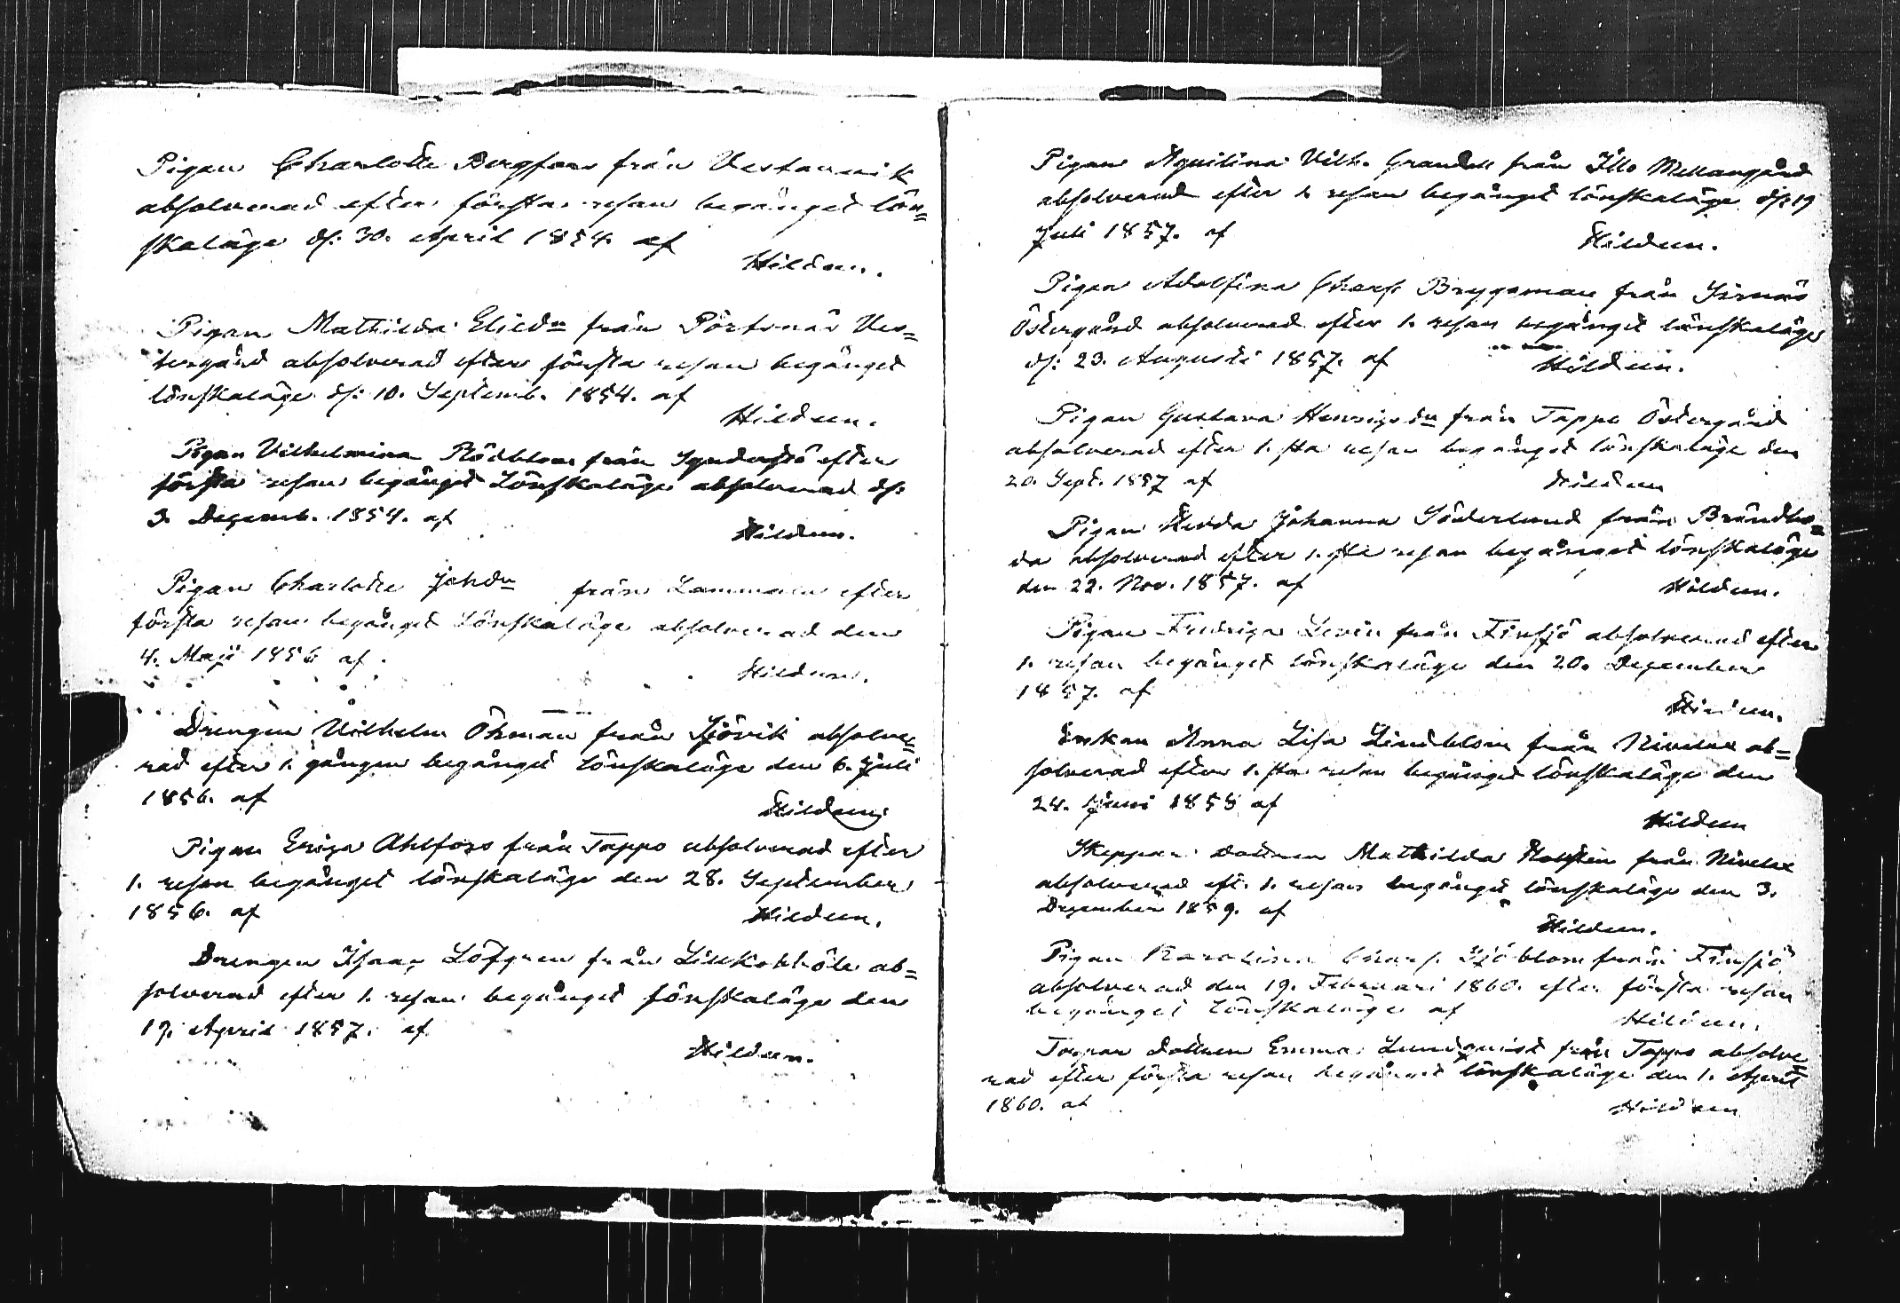 Pigan Charlotte Bergfors från Vestanvik
absolverad efter första resan begånget lön=
skaläge d: 30. April 1854. af
Hildeen.
Pigan Mathilda Elisdr från Pörtsnäs Ves=
tergård absolverad efter första resan begånget
lönskaläge d: 10. Septemb. 1854. af
Hildeen.
Pigan Vilhelmina Rödblom från efter
första resan begånget Lönskaläge absolverad d:
3. Decemb. 1854. af
Hildeen.
Pigan Charlotte Johdr från Lammala efter
första resan begånget Lönskaläge absolverad den
4. Maji 1856 af
Hildeen.
Drengen Vilhelm Öhman från absolve=
rad efter 1. gången begånget Lönskaläge den 6. Juli
1856. af
Hildeen.
Pigan Erica Ahlfors från Tappo absolverad efter
1. resan begånget lönskaläge den 28. September
1856. af
Hildeen.
Drengen Isaac Löfgren från ab=
solverad efter 1. resan begånget lönskaläge den
19. April 1857. af
Hildeen.
Pigan Aquilina Vilh. Grandell från Illo Mellangård
absolverad efter 1. resan begånget lönskaläge d: 19
Juli 1857. af
Hildeen.
Pigan Adolfina Charl. Bryggman från
Östergård absolverad efter 1. resan begånget lönskaläge
d: 23. Augusti 1857. af
Hildeen.
Pigan Gustava Henricsdr från Tappo Östergård
absolverad efter 1. sta resan begånget lönskaläge den
20. Sept. 1857 af
Hildeen
Pigan Hedda Johanna Söderlund från Brändbo=
da absolverad efter 1. sta resan begånget lönskaläge
den 22. Nov. 1857. af
Hildeen.
Pigan Fredrica Levin från Finsjö absolverad efter
1. resan begånget lönskaläge den 20. December
1857. af
Hildeen.
Enkan Anna Lisa Lindblom från Nivelax ab=
solverad efter 1. sta resan begånget lönskaläge den
24. Juni 1858 af
Hildeen
Skeppar dottren Mathilda från Nivelax
absolverad eft. 1. resan begånget lönskaläge den 3.
December 1859. af
Hildeen.
Pigan Karolina Charl. Sjöblom från Finsjö
absolverad den 19. Februari 1860. efter första resan
begånget Lönskaläge af
Hildeen.
Torpar dottren Emma Lundqvist från Tappo absolve=
rad efter första resan begånget lönskaläge den 1. April
1860. af
Hildeen